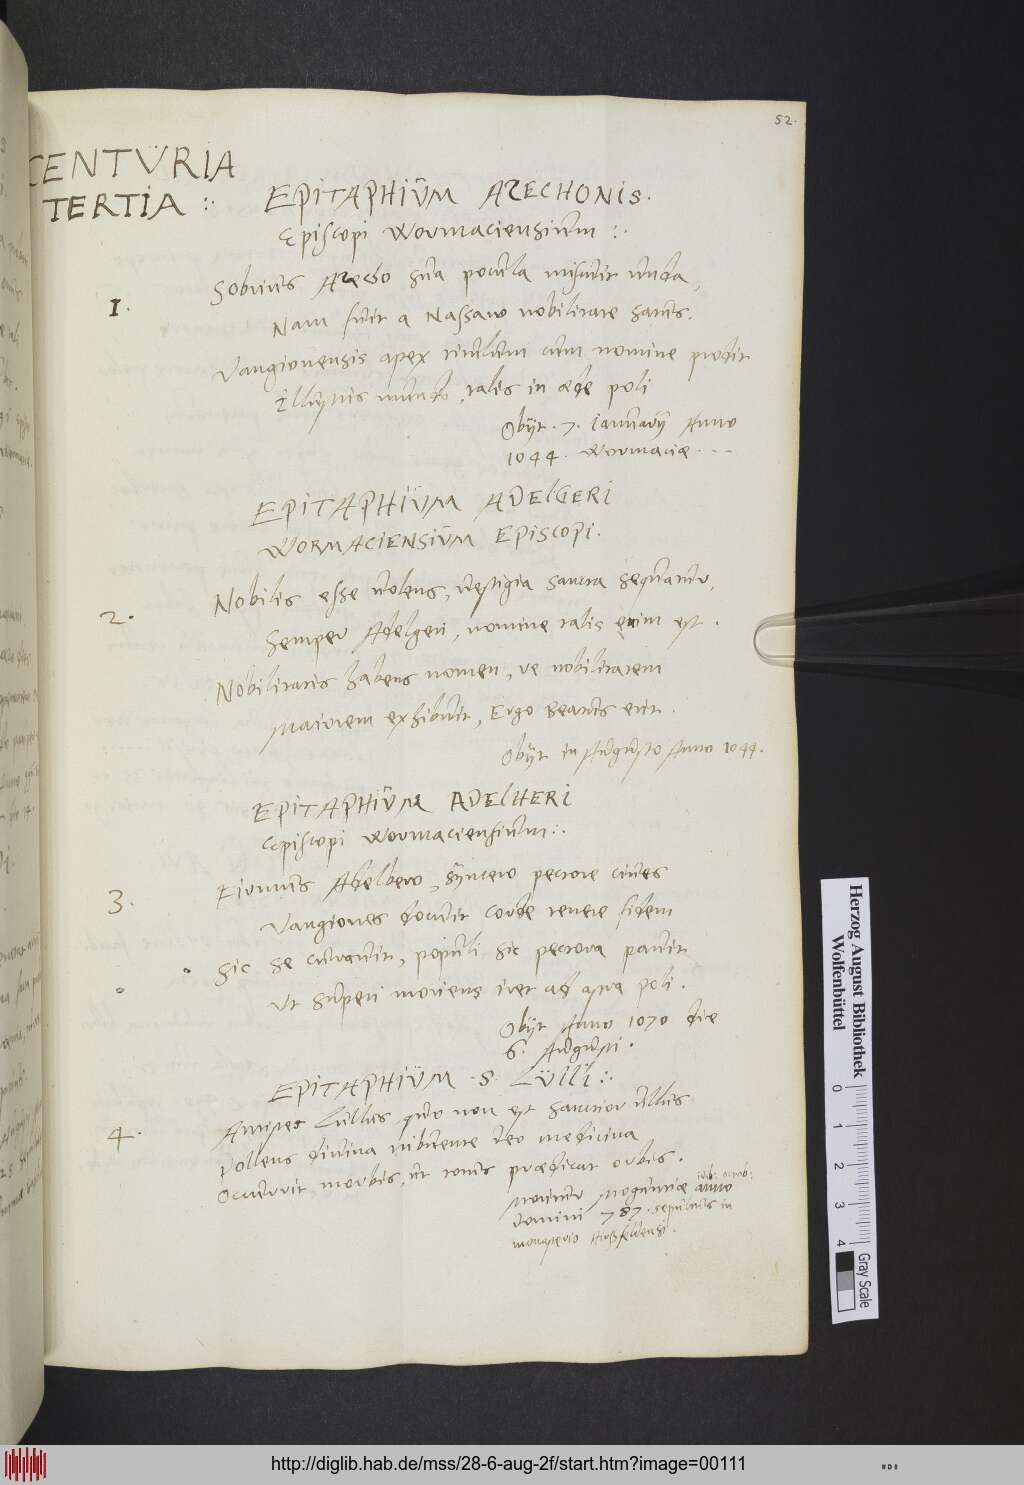 52.
CENTVRIA
TERTIA :.
EPITAPHIUM AZECHONIS.
Episcopi Wormaciensium :.
1.
Sobrius Azecho sua pocula miscuit unda,
Nam fuit a Nassaw nobilitate satus.
Vangionensis apex titulum cum nomine prodit
Illius mundo, talis in æde poli
Obijt. 7. Ianuarij Anno
1044. Wormaciæ . --
EPITAPHIUM ADELGERI
WORMACIENSIUM EPISCOPI.
2.
Nobilis esse volens, vestigia sancta sequantur,
Semper Adelgeri, nomine talis enim est.
Nobilitatis habens nomen, ut nobilitatem
Maiorem exhibuit, Ergo Beatus erit.
Obijt in Augusto Anno 1044.
EPITAPHIUM ADELHERI
Episcopi Wormaciensium :.
3.
Firmus Adelbero, syncero pectore cives
Vangiones docuit corde tenere fidem
Sic se curavit, populi sic pectora pavit
Ut superi moriens iret ad astra poli.
Obijt Anno 1070 die
6. Augusti.
EPITAPHIUM .S. LULLI :.
4.
Antistes Lullus, quo non est sanctior ullus
Pollens divina tribuente Deo medicina
Occurrit morbis, ut totus prædicat orbis.
Moritur Moguntiæ anno
Domini 787. sepultus in
monasterio Hirsfeldensi.
Herzog August Bibliothek
Wolfenbüttel
0 1 2 3 4
Gray Scale
http://diglib.hab.de/mss/28-6-aug-2f/start.htm?image=00111